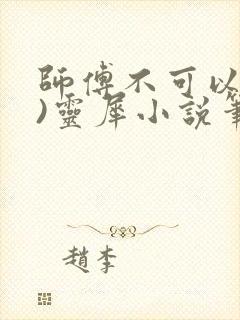 師傅不可以
)靈犀小說筆
趙李